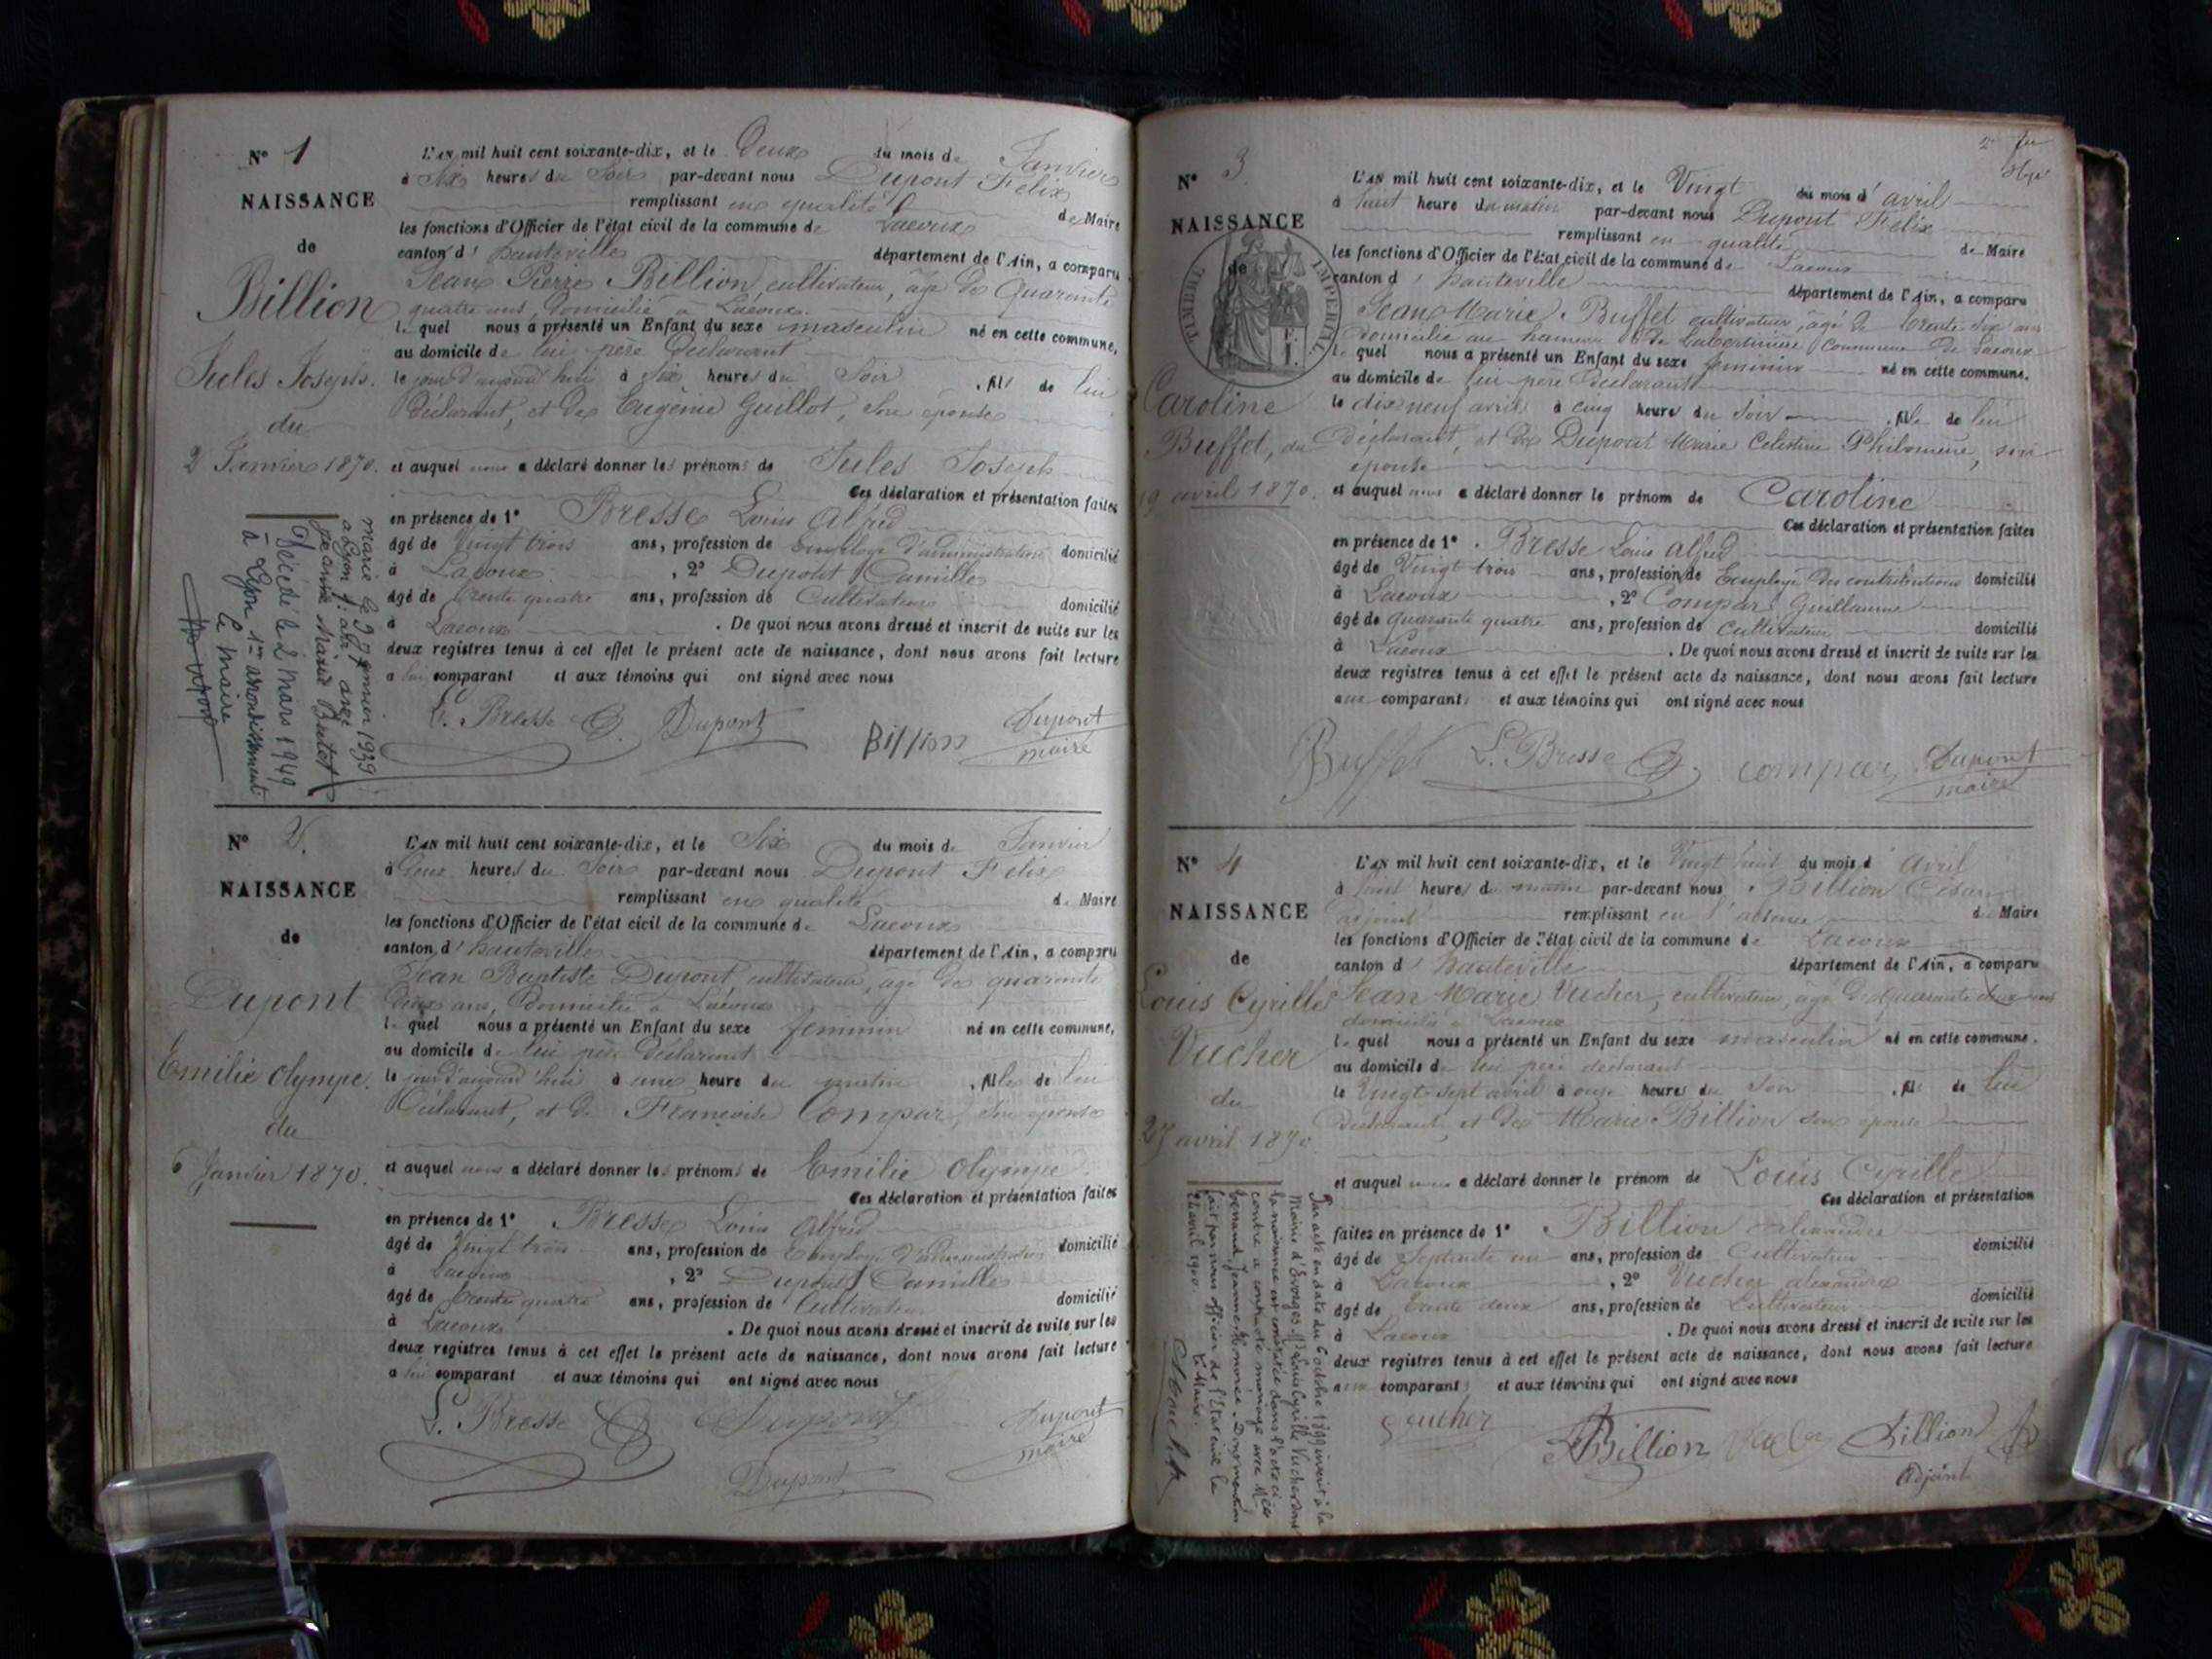 N° 1
NAISSANCE
de
Billion
Jules Joseph.
du
2 Janvier 1870.
marié le 9 janvier 1939
à Lyon
Jeanne Marie
Décédé le 2 mars 1949
à Lyon 1er arrondissement
Le maire
L'AN mil huit cent soixante-dix, et le Deux du mois de Janvier
à Six heures du Soir par-devant nous Dupont Félix
remplissant en qualité de Maire
les fonctions d'Officier de l'état civil de la commune de Lacoux
canton d' hauteville département de l'Ain, a comparu
Jean Pierre Billion, cultivateur, âgé de Quarante
quatre ans, domicilié à Lacoux.
le quel nous a présenté un Enfant du sexe masculin né en cette commune,
au domicile de lui père déclarant
le jour d'aujourd'hui à Six heures du Soir, fils de lui
déclarant, et de Eugénie Guillot, son épouse
et auquel nous a déclaré donner les prénoms de Jules Joseph
Ces déclaration et présentation faites
en présence de 1° Bresse Louis Alfred
âgé de Vingt trois ans, profession de Employé d'administration domicilié
à Lacoux, 2° Dupont Camille
âgé de trente quatre ans, profession de Cultivateur domicilié
à Lacoux. De quoi nous avons dressé et inscrit de suite sur les
deux registres tenus à cet effet le présent acte de naissance, dont nous avons fait lecture
a lui comparant et aux témoins qui ont signé avec nous
L. Bresse Dupont Billion Dupont
maire
N° 2.
NAISSANCE
de
Dupont
Emilie Olympe.
du
6 Janvier 1870.
L'AN mil huit cent soixante-dix, et le Six du mois de Janvier
à Deux heures du Soir par-devant nous Dupont Félix
remplissant en qualité de Maire
les fonctions d'Officier de l'état civil de la commune de Lacoux
canton d' hauteville département de l'Ain, a comparu
Jean Baptiste Dupont, cultivateur, âgé de quarante
deux ans, domicilié à Lacoux
le quel nous a présenté un Enfant du sexe feminin né en cette commune,
au domicile de lui père déclarant
le jour d'aujourd'hui à une heure du matin, fille de lui
Déclarant, et de Françoise Compar, son épouse
et auquel nous a déclaré donner les prénoms de Emilie Olympe.
Ces déclaration et présentation faites
en présence de 1° Bresse Louis Alfred
âgé de Vingt trois ans, profession de Employé d'administration domicilié
à Lacoux, 2° Dupont Camille
âgé de trente quatre ans, profession de Cultivateur domicilié
à Lacoux. De quoi nous avons dressé et inscrit de suite sur les
deux registres tenus à cet effet le présent acte de naissance, dont nous avons fait lecture
a lui comparant et aux témoins qui ont signé avec nous
L. Bresse Dupont Dupont
maire
Dupont
N° 3
NAISSANCE
de
TIMBRE IMPERIAL
Caroline
Buffet, du
19 avril 1870.
L'AN mil huit cent soixante-dix, et le Vingt du mois d' avril
à huit heure du matin par-devant nous Dupont Félix
remplissant en qualité de Maire
les fonctions d'Officier de l'état civil de la commune de Lacoux
canton d' hauteville département de l'Ain, a comparu
Jean Marie Buffet cultivateur, âgé de trente six ans
domicilié au hameau de commune de Lacoux
le quel nous a présenté un Enfant du sexe feminin né en cette commune.
au domicile de lui père déclarant
le dix neuf avril à cinq heure du Soir, fille de lui
déclarant, et de Dupont Marie Celestine Philomène, son
épouse
et auquel nous a déclaré donner le prénom de Caroline
Ces déclaration et présentation faites
en présence de 1° Bresse Louis Alfred
âgé de Vingt trois ans, profession de Employé des contributions domicilié
à Lacoux, 2° Compar Guillaume
âgé de quarante quatre ans, profession de cultivateur domicilié
à Lacoux. De quoi nous avons dressé et inscrit de suite sur les
deux registres tenus à cet effet le présent acte de naissance, dont nous avons fait lecture
aux comparant et aux témoins qui ont signé avec nous
Buffet L. Bresse compar Dupont
maire
N° 4
NAISSANCE
de
Louis Cyrille
Vucher
du
27 avril 1870
Par acte en date du 6 octobre 1899 inscrit à la
Mairie d'Evosges, Mr Louis Cyrille Vucher dont
la naissance est constatée dans l'acte ci-
contre a contracté mariage avec Melle
Jeanne Honorée. Dont mention
faite par nous officier de l'Etat civil le
avril 1900. Le Maire:
L'AN mil huit cent soixante-dix, et le Vingt huit du mois d' Avril
à huit heures du matin par-devant nous Billion César
adjoint remplissant en l'absence de Maire
les fonctions d'Officier de l'état civil de la commune de Lacoux
canton d' hauteville département de l'Ain, a comparu
Jean Marie Vucher, cultivateur, âgé de quarante deux ans
domicilié à Lacoux
le quel nous a présenté un Enfant du sexe masculin né en cette commune.
au domicile de lui père déclarant
le Vingt sept avril à onze heures du Soir, fils de lui
déclarant, et de Marie Billion son épouse
et auquel nous a déclaré donner le prénom de Louis Cyrille
Ces déclaration et présentation
faites en présence de 1° Billion Alexandre
âgé de Septante un ans, profession de Cultivateur domicilié
à Lacoux, 2° Vucher alexandre
âgé de trente deux ans, profession de Cultivateur domicilié
à Lacoux. De quoi nous avons dressé et inscrit de suite sur les
deux registres tenus à cet effet le présent acte de naissance, dont nous avons fait lecture
aux comparant et aux témoins qui ont signé avec nous
Vucher Billion Billion
Adjoint